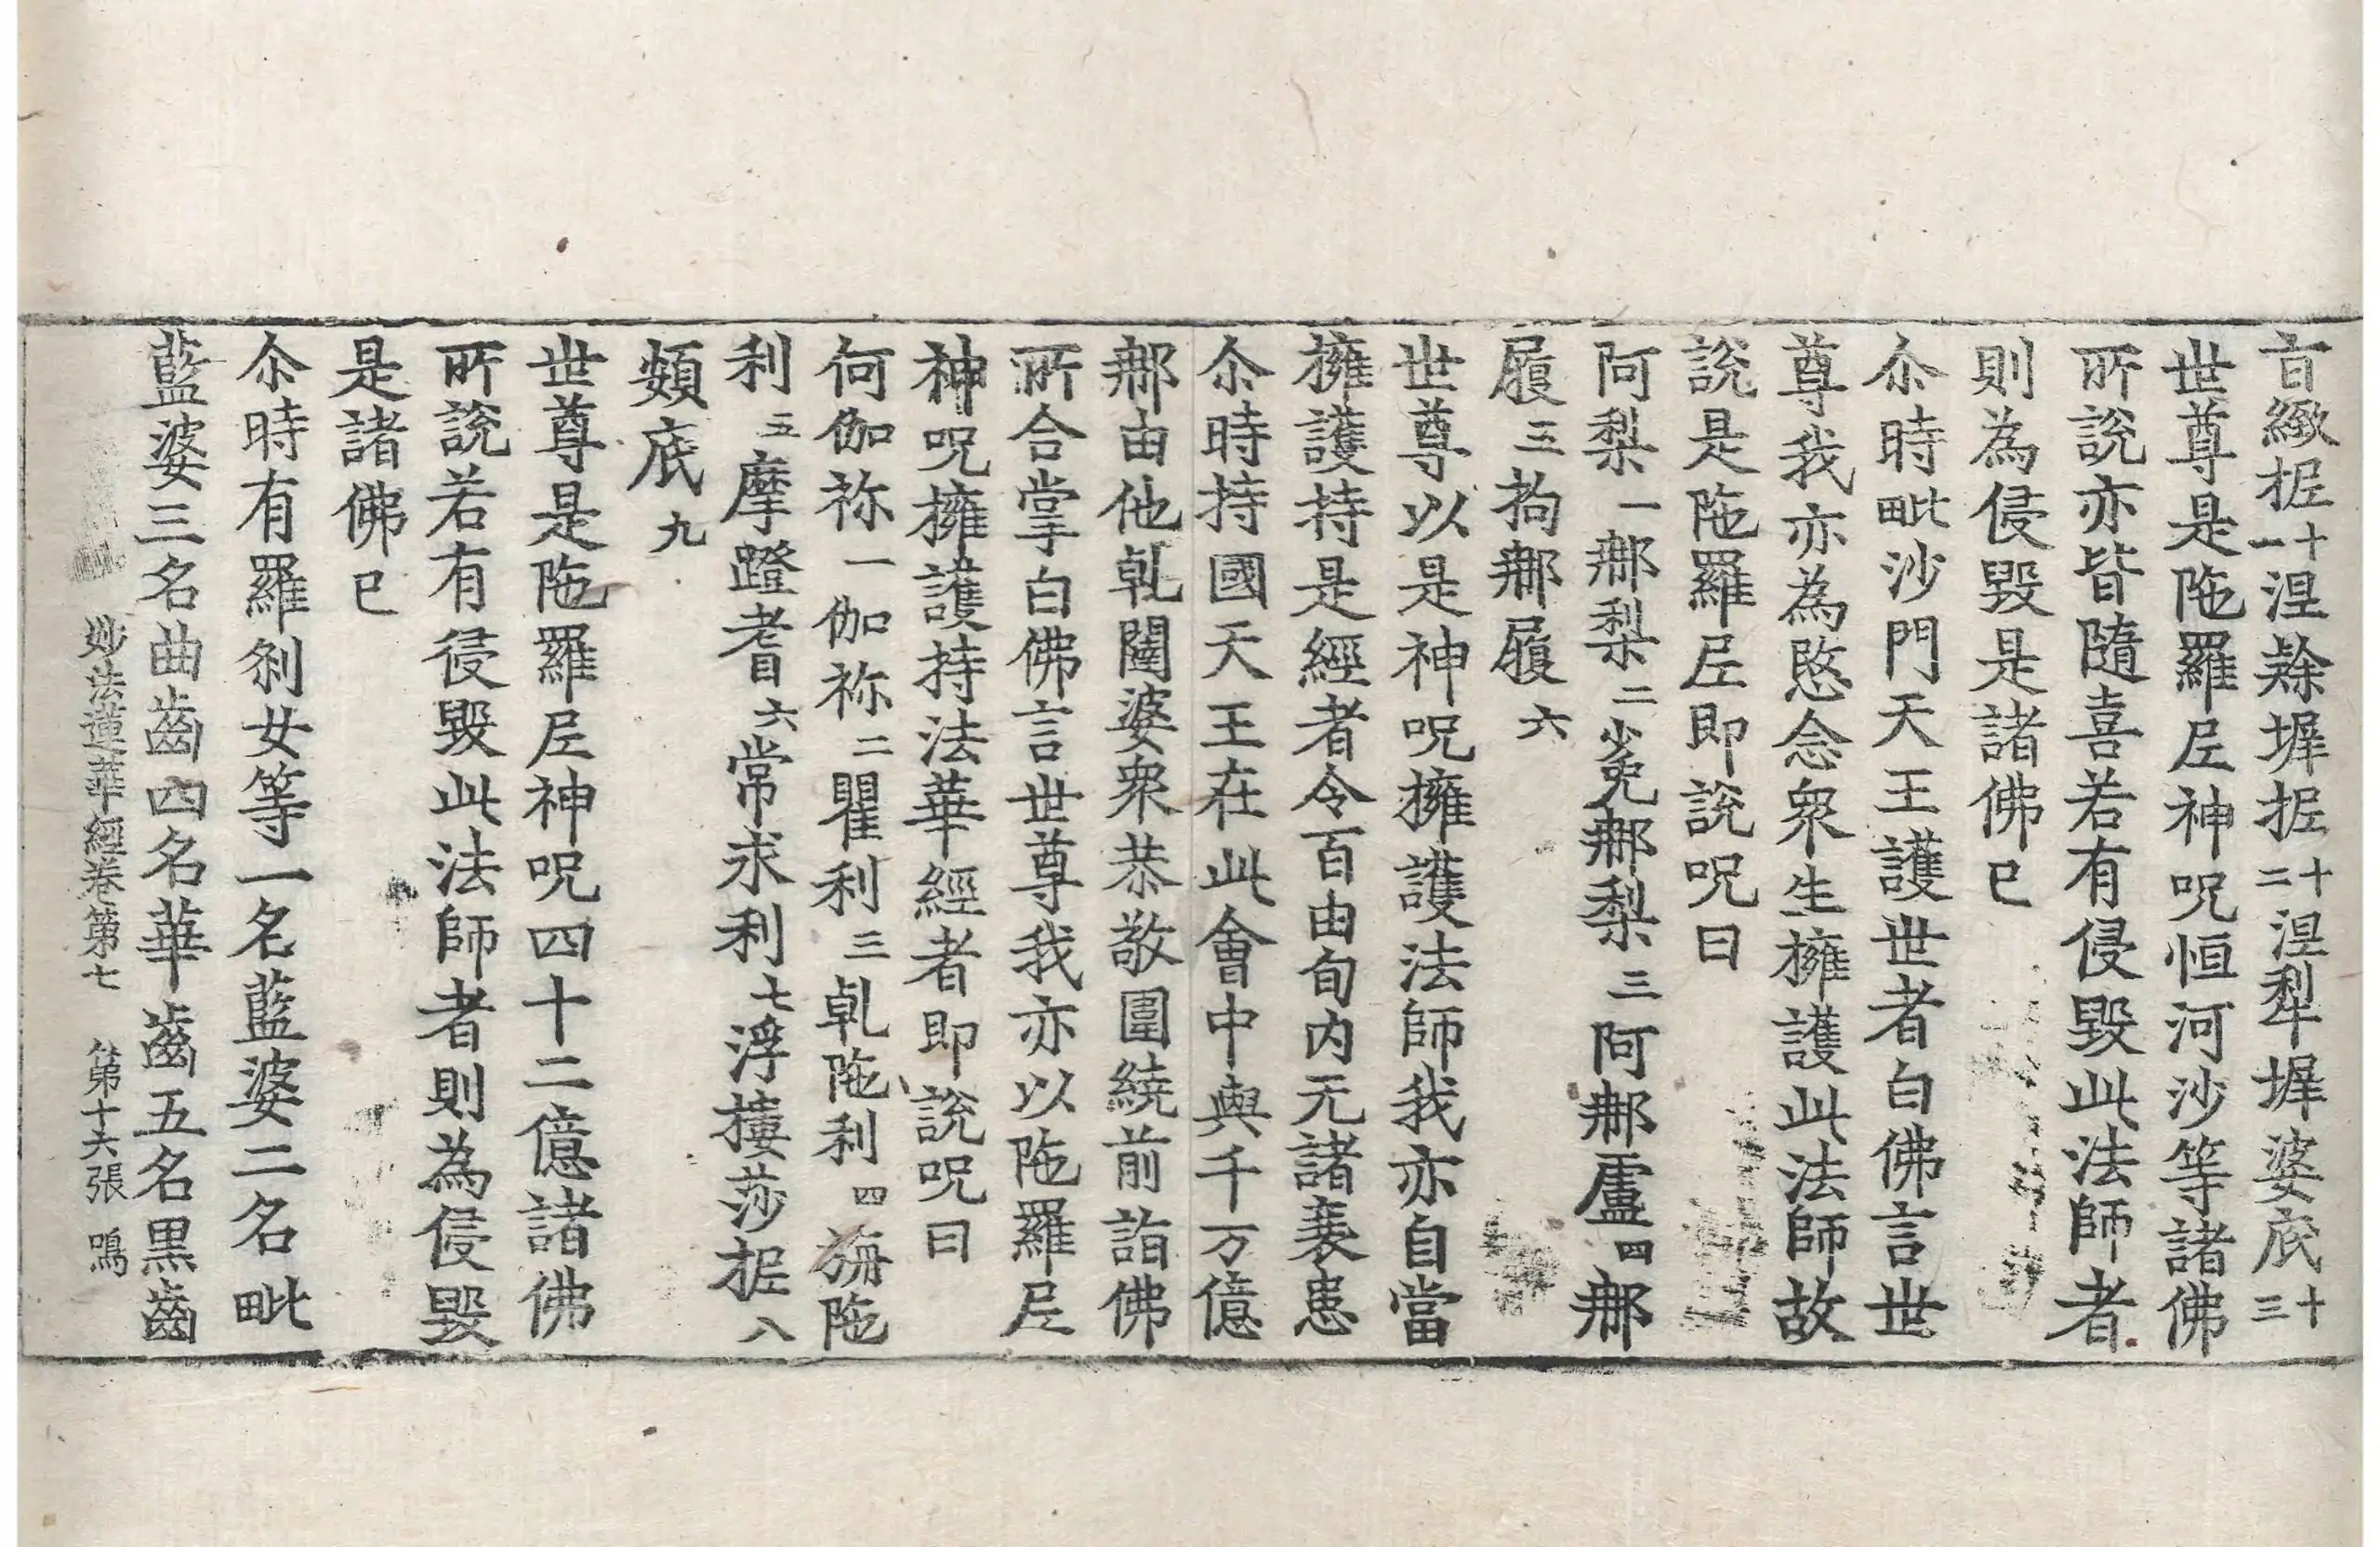 旨緻抳十一涅隸墀抳十二涅犁墀婆底十三
世尊是陁羅尼神呪恒河沙等諸佛
所說亦皆隨喜若有侵毀此法師者
則為侵毀是諸佛已
尒時毗沙門天王護世者白佛言世
尊我亦為愍念衆生擁護此法師故
說是陁羅尼即說呪曰
阿梨一那梨二㝹那梨三阿那盧四那
履五拘那履六
世尊以是神呪擁護法師我亦自當
擁護持是經者令百由旬内无諸衰患
尒時持國天王在此會中與千万億
那由他乹闥婆衆恭敬圍繞前詣佛
所合掌白佛言世尊我亦以陁羅尼
神呪擁護持法華經者即說呪曰
何伽祢一伽祢二瞿利三乹陁利四旃陁
利五摩蹬耆六常求利七浮樓莎抳八
頞底九
世尊是陁羅尼神呪四十二億諸佛
所說若有侵毀此法師者則為侵毀
是諸佛已
尒時有羅刹女等一名藍婆二名毗
藍婆三名曲齒四名華齒五名黒齒
妙法蓮華經卷第七 第十六張 鳴